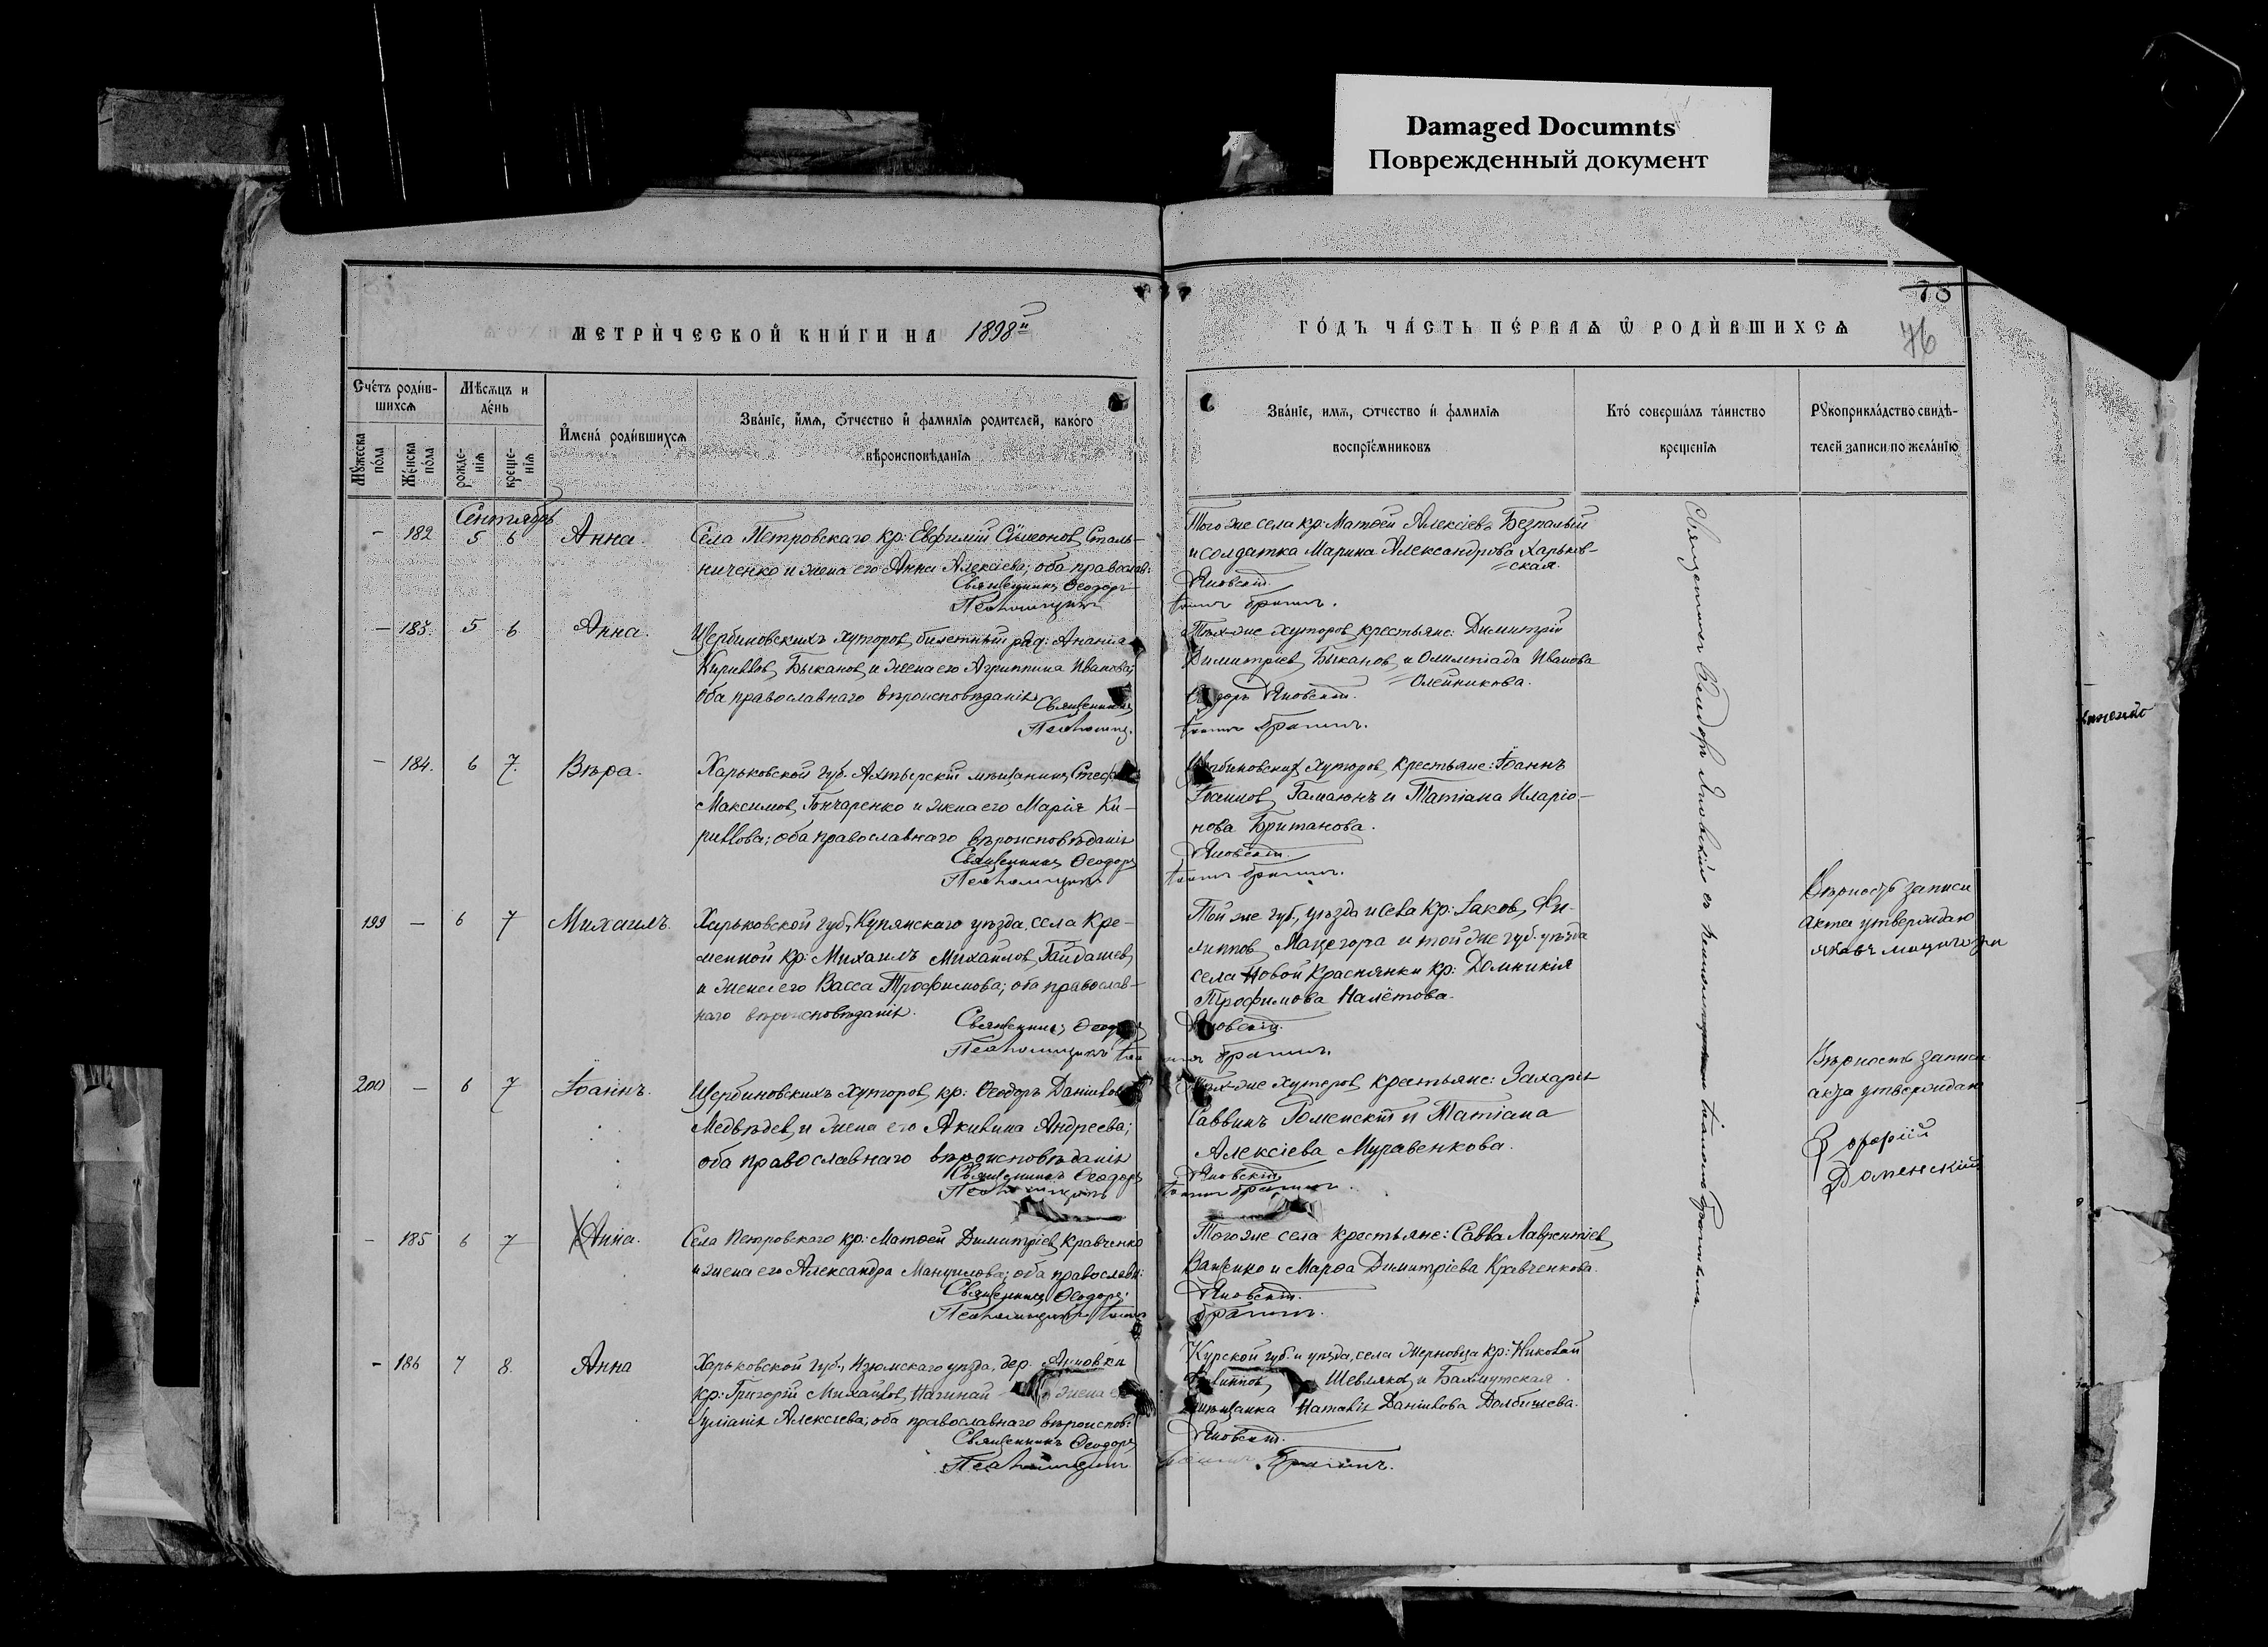 Damaged Documnts
Поврежденный документ
МЕТРИ́ЧЕСКОЙ КНИ́ГИ НА 1898й
ГО́ДЪ ЧА́СТЬ ПЕ́РВАѦ Ѿ РОДИ́ВШИХСѦ
78
76
Сче́тъ роди́в-
шихсѧ
Мѣ́сѧцъ и
де́нь
Мꙋ́жеска
по́ла
Же́нска
по́ла
рожде-
нїѧ
креще-
нїѧ
И҆мена̀ роди́вшихсѧ
Зва́нїе, и҆́мѧ, ѻ҆́тчество и҆ фами́лїѧ родителей, како́го
вѣроисповѣ́данїѧ
Зва́нїе, имѧ, ѻтчество и҆ фамилїѧ
воспрїе́мниковъ
Кто́ соверша́лъ та́инство
креще́нїѧ
Рꙋкоприкла́дство свидѣ́-
телей записи по жела́нїю
Сентябрь
- 182 5 6 Анна.
Села Петровскаго кр: Евфимій Сѵмеонов Сталь-
ниченко и жена его Анна Алексіева; оба православ:
Священник Ѳеодоръ
Того же села кр: Матѳей Алексіевъ Безпалый
и солдатка Марина Александрова Харьков-
=ская.
Яновскій.
— 183. 5 6 Анна.
Щербиновскихъ хуторов, билетный ряд: Ананія
Кириллов Быканов и жена его Агриппина Иванова;
оба православнаго вѣроисповѣданія
Священникъ
Тѣх-же хуторов крестьяне: Димитрій
Димитріев Быканов и Олимпіада Иванова
=Олейникова.
Яновскій.
— 184. 6 7. Вѣра.
Харьковской губ. Ахтырскій мѣщанинъ
Максимов Гончаренко и жена его Марія Ки-
риллова; оба православнаго вѣроисповѣданія
Священникъ Ѳеодоръ
хуторов крестьяне: Іоаннъ
Гамаюнъ и Татіана Иларіо-
нова Британова.
Яновскій.
199 — 6 7 Михаилъ.
Харьковской губ., Купянскаго уѣзда, села Кре-
менной кр: Михаилъ Михайлов Гайдашев
и жена его Васса Трофимова; оба православ-
наго вѣроисповѣданія.
Священникъ
Той же губ., уѣзда и села кр: Іаков Фи-
липпов Мацегора и той же губ. уѣзда
села Новой Краснянки кр: Домникія
Трофимова Налётова.
Вѣрность записи
акта утверждаю
200 — 6 7 Іоаннъ.
Щербиновскихъ хуторов, кр: Ѳеодоръ
Медвѣдев и жена его Акилина Андреева;
оба православнаго вѣроисповѣданія
Священникъ Ѳеодоръ
хуторов крестьяне: Захарія
Саввинъ Роменскій и Татіана
Алексіева Муравенкова.
Яновскій
Вѣрность записи
акта утверждаю
- 185 6 7 Анна.
Села Петровскаго кр: Матѳей Димитріев Кравченко
и жена его Александра Мануилова; оба православн:
Священникъ Ѳеодоръ:
Того же села крестьяне: Савва Лаврентіев
Ващенко и Марѳа Димитріева Кравченкова.
Яновскій.
- 186 7 8. Анна
Харьковской губ., Изюмскаго уѣзда, дер.
кр: Григорій Михайлов жена
Іуліанія Алексіева; оба православнаго вѣроиспов:
Священникъ Ѳеодоръ
Курской губ. и уѣзда, села кр: Николай
Шевляков и Бахмутская
Наталія Даніилова
Яновскій.